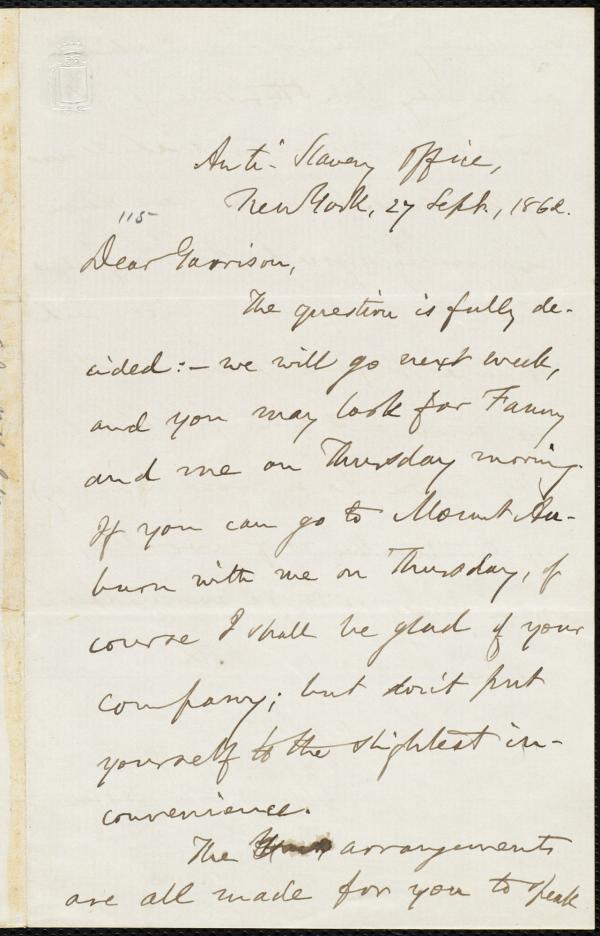 Anti-Slavery Office,
New York, 27 Sept., 1862.
115
Dear Garrison,
The question is fully de-
cided:– we will go next week,
and you may look for Fanny
and me on Thursday morning.
If you can go to Mount Au-
burn with me on Thursday, of
course I shall be glad of your
company; but don't put
yourself to the slightest in-
convenience.
The arrangements
are all made for you to speak